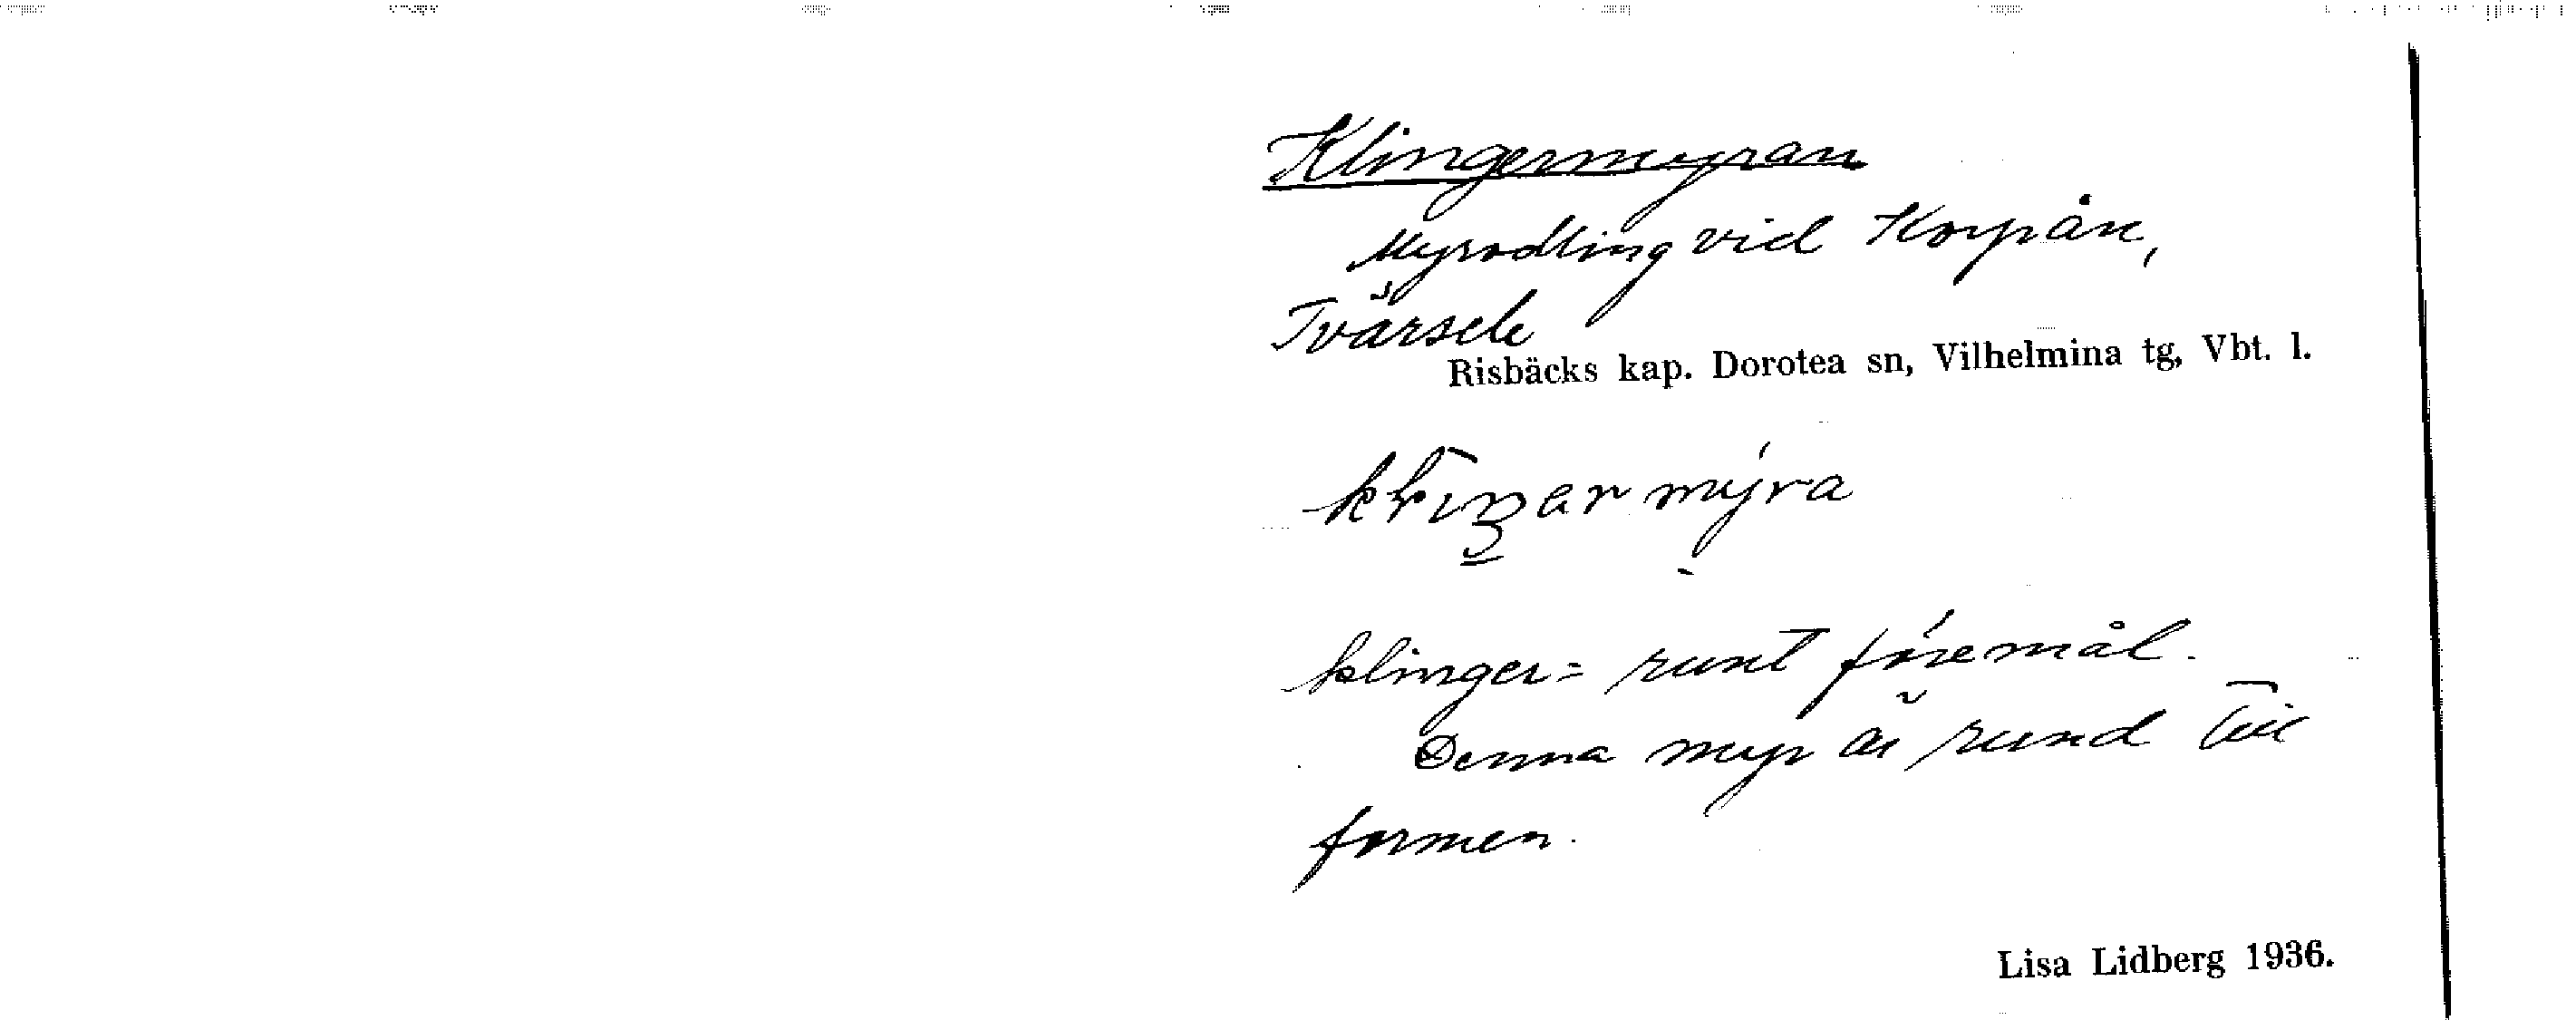 Klingermyran
Myrodling vid Korpån,
Tvärsele
Risbäcks kap. Dorotea sn, Vilhelmina tg, Vbt. l.
klingermyra
klinger = runt föremål.
Denna myr är rund till
formen.
Lisa Lidberg 1936.